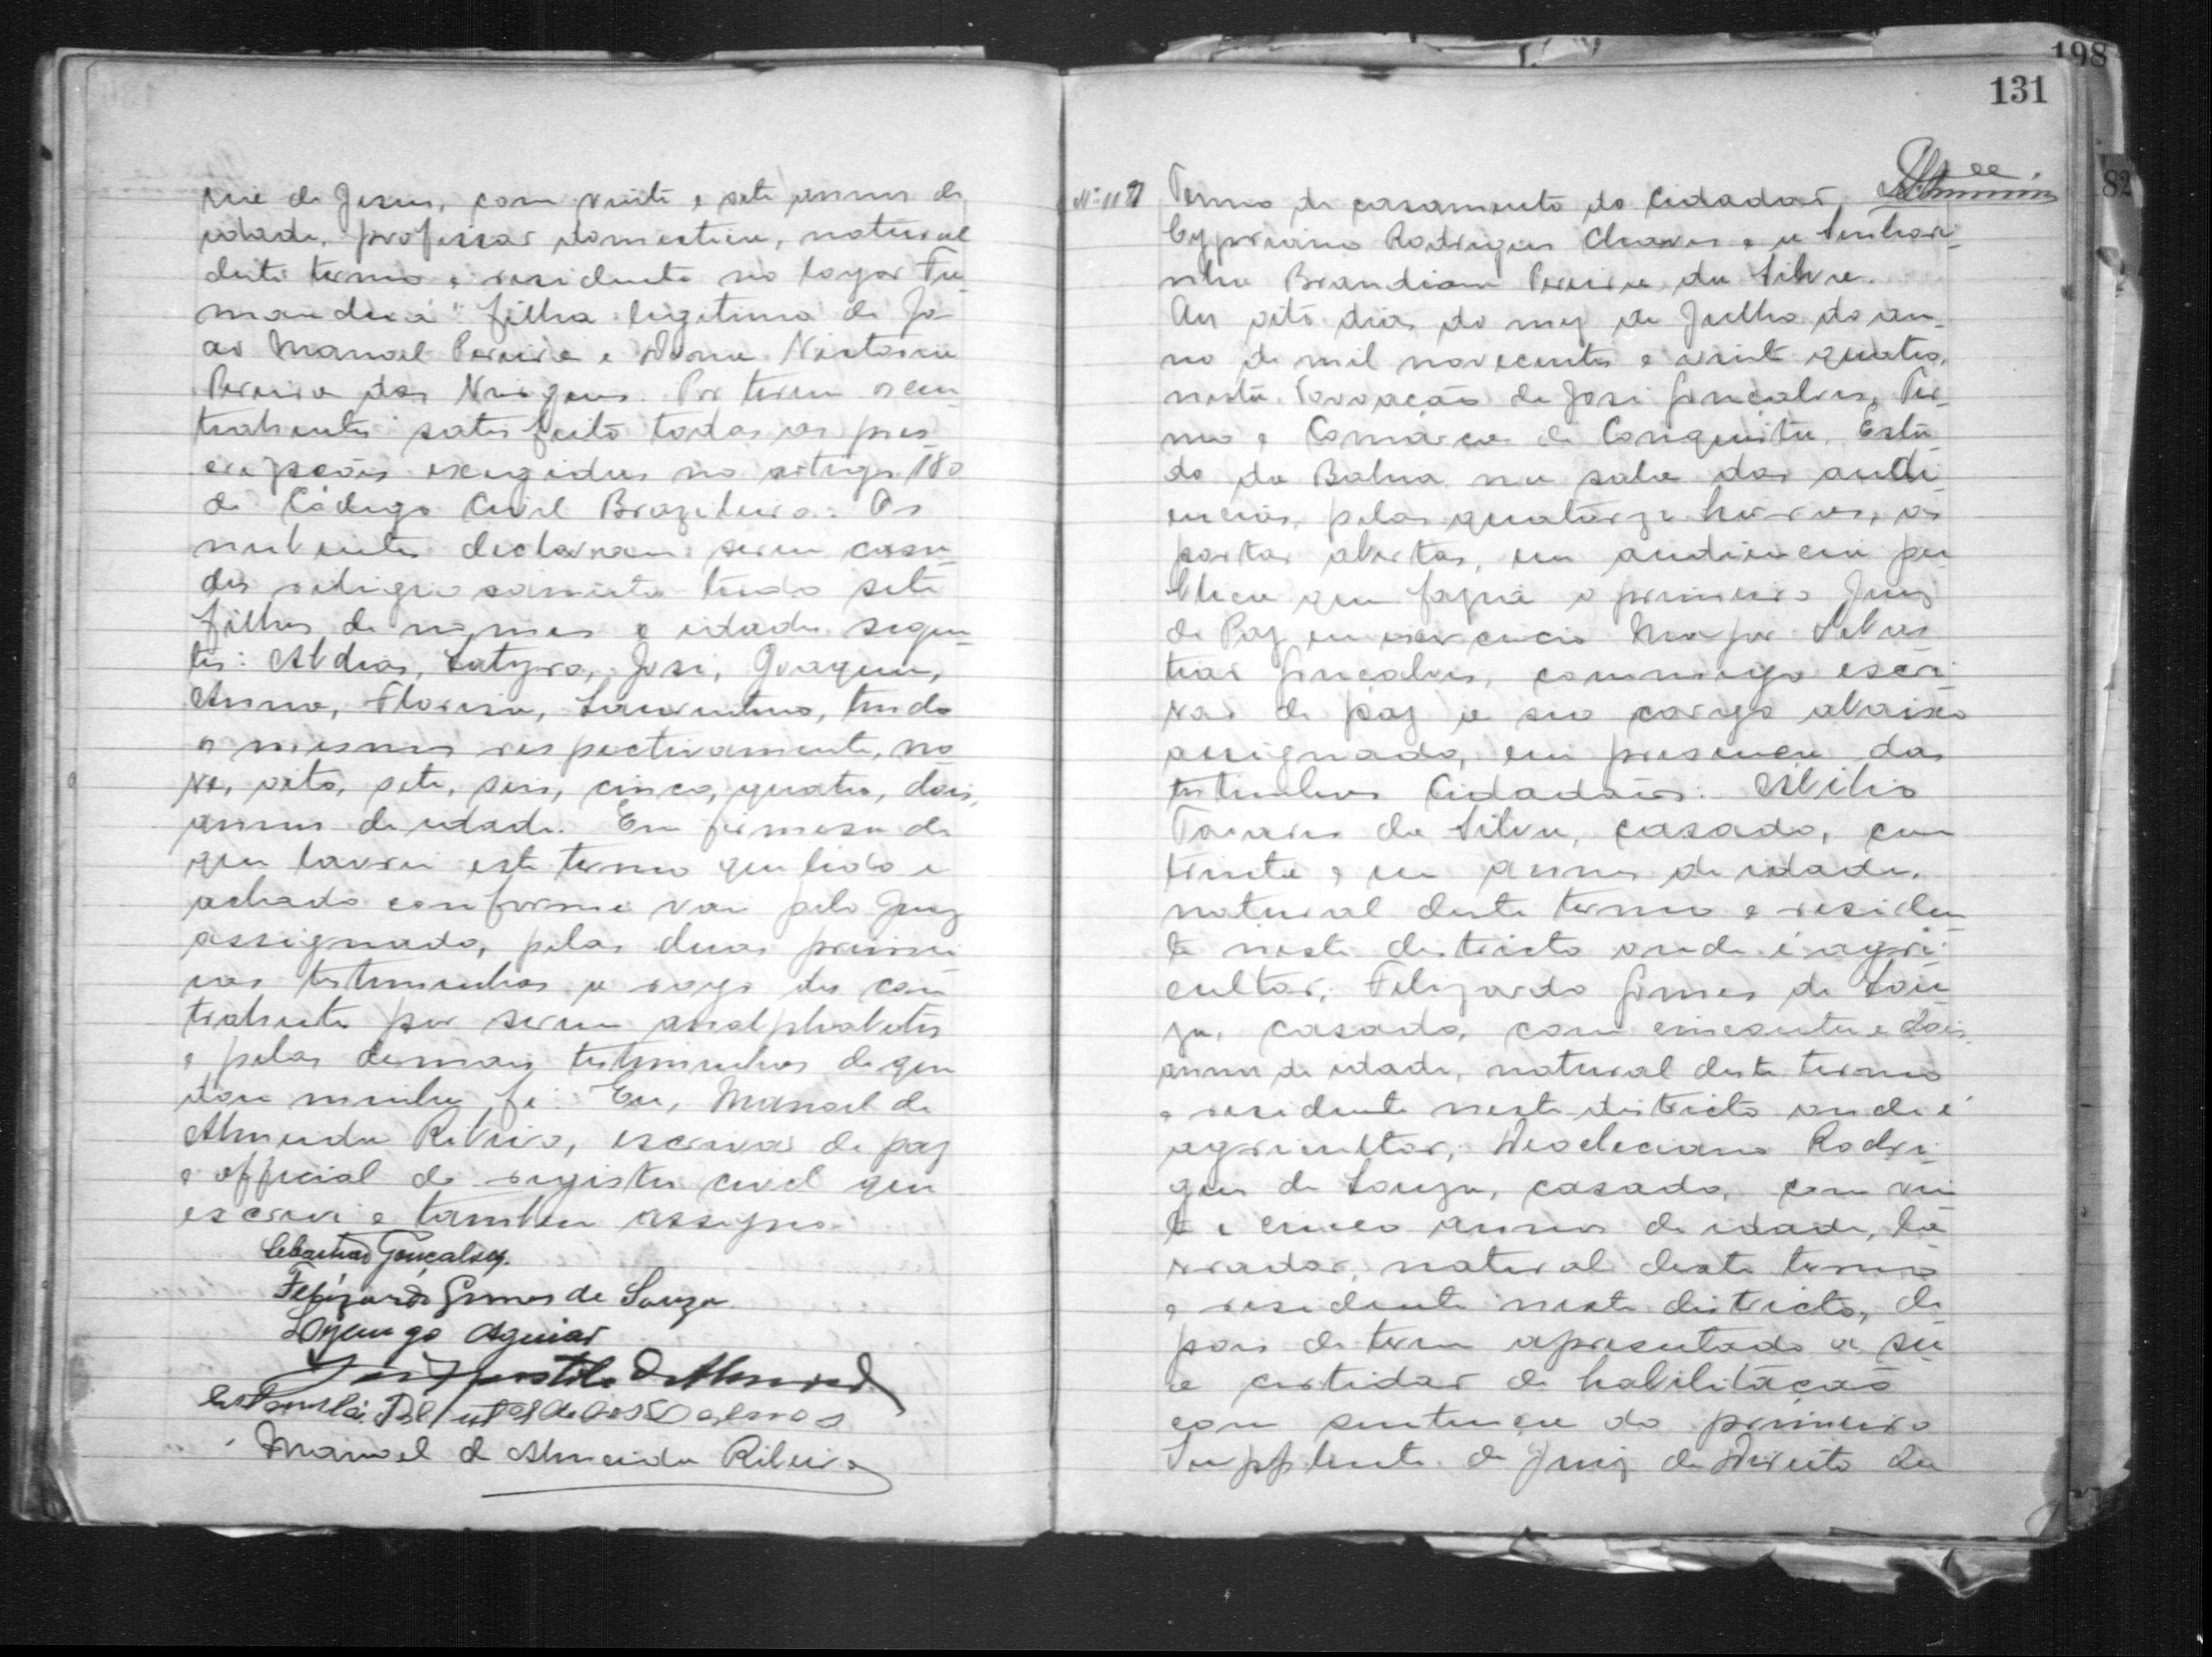 ria de Jesus, com vinte e sete annos de
idade, professar domestica, natural
deste termo e residente no logar Fu-
mandua" filha legitima de Jo-
ão Manoel Pereira e Dona Victoria
Pereira das Virgens. Por terem os con-
trahentes satisfeito todas as pres-
cripsões exegidas no artigo 180
do Código Civil Brazileiro. Os
nubentes declararam serem casa-
dos religiosamente tendo sete
filhos de nomes e idades seguin-
tes: Abdias, Satyro, José, Joaquim,
Anna, Florisa, Laurentino, tendo
os mesmos respectivamente, no-
ve, oito, sete, seis, cinco, quatro, dois,
annos de idade. Em firmesa do
que lavrei este termo que lido e
achado conforme vai pelo Juiz
assignado, pelas duas primei-
ras testimunhas a rogo dos con-
trahentes por serem analphabetos
e pelas demais testimunhas do que
dou minha fé. Eu, Manoel de
Almeida Ribeiro, escrivão de paz
e official do registro civil que
escrevi e tambem assigno.
Sebastião Gonçalves.
Felizardo Gomes de Souza
Lourenço Aguiar
de Almeida
Manoel de Almeida Ribeiro
198
131
82
Nº 118
Termo de casamento do Cidadão
Cypriano Rodrigues Chaves e a Senhori-
nha Brandian Pereira da Silva.
Aos oito dias do mez de Julho do an-
no de mil novecentos e vinte quatro,
nesta Povoação de José Gonçalves, Ter-
mo e Comarca de Conquista, Esta-
do da Bahia na sala das audi-
encias, pelas quatorze horas, as
portas abertas, em audiencia pu-
blica que fazia o primeiro Juiz
de Paz em exercicio Major Sebas-
tião Gonçalves, commigo escri-
vão de paz a seu cargo abaixo
assignado, em presença das
testimunhas Cidadãos: Abilio
Tavares da Silva, casado, com
trinta e um annos de idade,
natural deste termo e residen-
te neste districto onde é agri-
cultor; Felizardo Gomes de Sou-
za, casado, com cincoenta e dois
annos de idade, natural deste termo
e residente neste districto onde é
agricultor; Deocleciano Rodri-
gues de Souza, casado, com vin-
te e cinco annos de idade, la-
vrador, natural deste termo
e residente neste districto, de-
pois de terem apresentado a su-
a certidão de habilitação
com sentença do primeiro
Supplente do Juiz de Direito da